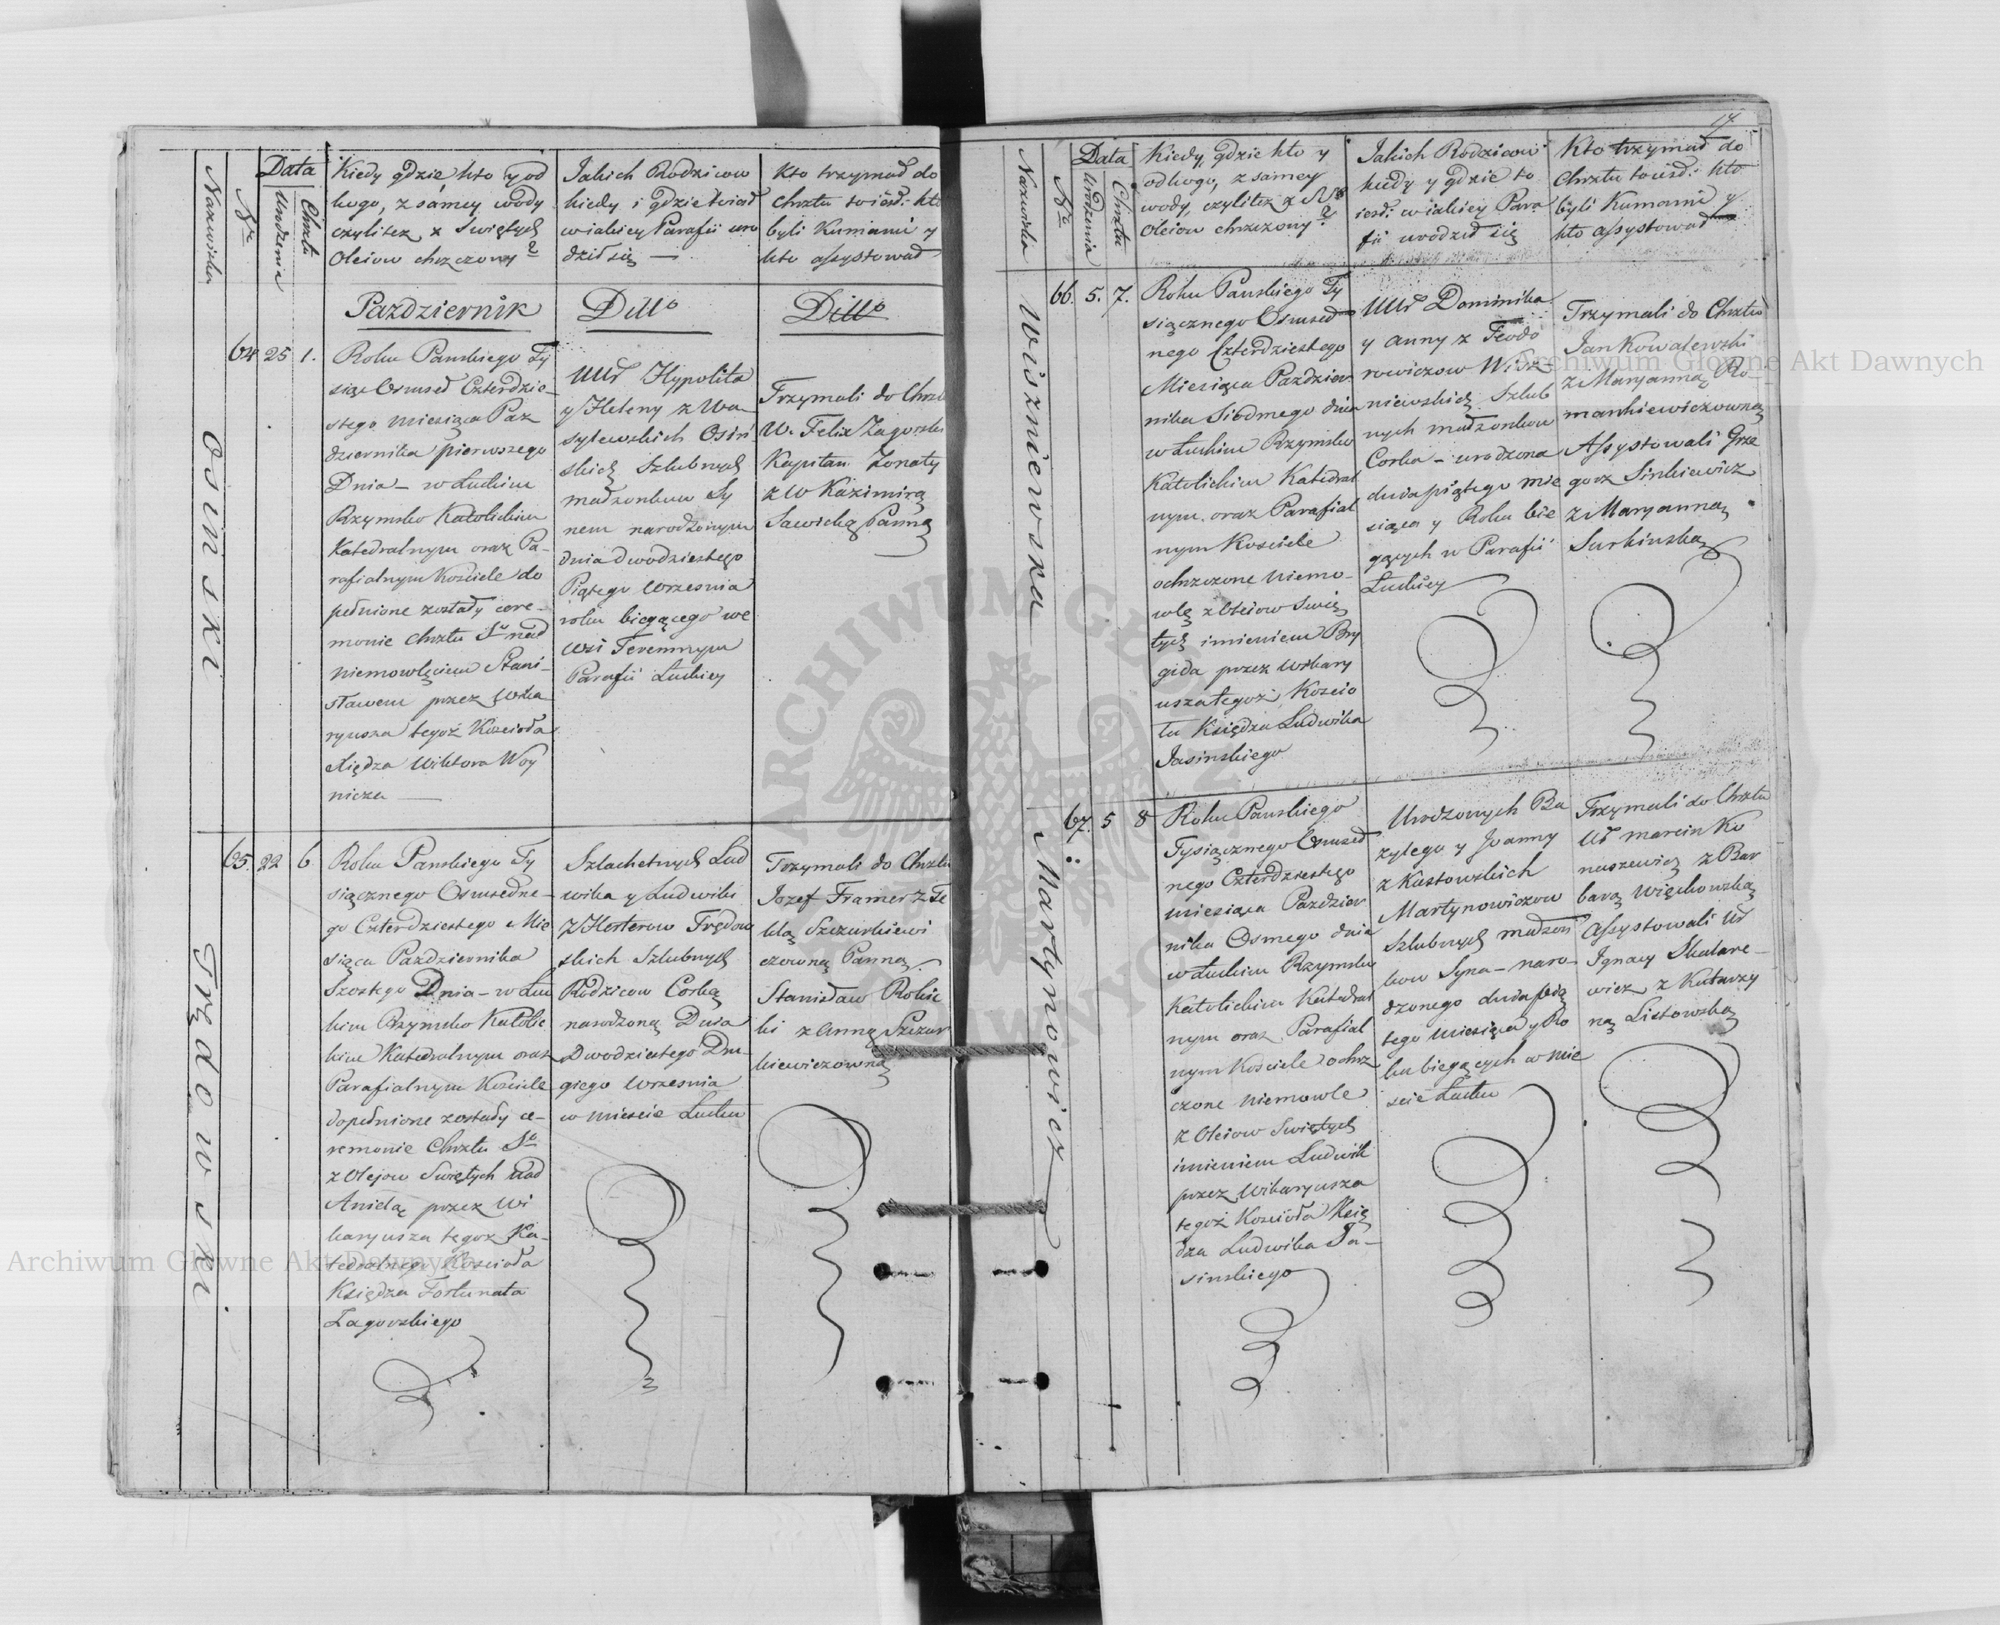 Nazwiska
Nr
Data
Urodzenia
Chrztu
Kiedy gdzie kto y od
kogo, z samey wody
czylitez z Swiętych
Oleiow chrzczony?
Jakich Rodzicow
kiedy i gdzie to iest
w iakiey Parafii uro
dził się —
Kto trzymał do
Chrztu to iest: kto
byli Kumami y
kto assystował
Pazdziernik
Ditto
Ditto
Osinski
64
25
1.
Roku Panskiego Ty
siąc Osmset Czterdzie-
stego Miesiąca Paz
dziernika pierwszego
Dnia — w Łuckim
Rzymsko Katolickim
Katedralnym oraz Pa-
rafialnym Kościele do
pełnione zostały cere-
monie Chrztu So nad
niemowlęciem Stani-
sławem przez Wika
ryusza tegoż Kościoła
Xiędza Wiktora Woy
nicza —
UUr Hypolita
y Heleny z Wa
sylewskich Osiń
skich Szlubnych
małzonkow Sy
nem narodzonym
dnia Dwodziestego
Piątego Wrzesnia
roku biegącego we
wsi Teremnym
Parafii Łuckiey
Trzymali do Chrztu
W. Felix Zagorski
Kapitan Zonaty
z W Kazimirą
Sawicką Panną
Trędowski
65.
22
6
Roku Panskiego Ty
siącznego Osmsetne-
go Czterdziestego Mie
siąca Pazdziernika
Szostego Dnia — w Łuc
kim Rzymsko Katolic
kim Katedralnym oraz
Parafialnym Kościele
dopełnione zostały ce-
remonie Chrztu So
z Olejow Swiętych nad
Anielą przez Wi
karyusza tegoż Ka-
tedralnego Kościoła
Księdza Fortunata
Zagorskiego
Szlachetnych Lud
wika y Ludwiki
z Herterow Trędow
skich Szlubnych
Rodzicow Corką
narodzoną Dnia
Dwodziestego Dru-
giego Wrzesnia
w mieście Łucku
Trzymali do Chrztu
Jozef Framer z Te
klą Szczurkiewi
czowną Panną
Stanisław Rolic
ki z Anną Szczur
kiewiczowną
17
Nazwiska
Nr
Data
Urodzenia
Chrztu
Kiedy, gdzie kto y
od kogo, z samey
wody, czylitez z SS
Oleiow chrzczony?
Jakich Rodzicow
kiedy y gdzie to
iest: w iakiey Para
fii urodził się
Kto trzymał do
Chrztu to iest: kto
byli Kumami y
kto assystował
Wiszniewska
66.
5.
7.
Roku Panskiego Ty
siącznego Osmset
nego Czterdziestego
Miesiąca Pazdzier
nika Siodmego dnia
w Łuckim Rzymsko
Katolickim Katedral
nym oraz Parafial
nym Kosciele
ochrzczone niemo-
wlę z Oleiow Swię
tych imieniem Bry
gida przez Wikary
usza tegoż Koscio
ła Księdza Ludwika
Jasinskiego
UUr Dominika
y Anny z Teodo
rowiczow Wisz-
niewskich Szlub
nych małzonkow
Corka — urodzona
dnia piątego mie
siąca y Roku bie
gących w Parafii
Łuckiey
Trzymali do Chrztu
Jan Kowalewski
z Maryanną Ro-
mankiewiczowną
Assystowali Grze
gorz Sinkiewicz
z Maryanną
Surkinską
Martynowicz
67.
5
8
Roku Panskiego
Tysiącznego Osmset
nego Czterdziestego
miesiąca Pazdzier
nika Osmego dnia
w Łuckim Rzymsko
Katolickim Katedral
nym oraz Parafial
nym Kosciele ochrz
czone niemowle
z Oleiow Swiętych
imieniem Ludwik
przez Wikaryusza
tegoż Kościoła Księ
dza Ludwika Ja-
sinskiego
Urodzonych Ba
zylego y Joanny
z Kastowskich
Martynowiczow
Szlubnych małzon
kow Syna — naro-
dzonego dnia pią
tego miesiąca y Ro
ku biegących w mie
scie Łucku
Trzymali do Chrztu
Ur Marcin Ko
naszewicz z Bar
barą Więckowską
Assystowali Ur
Ignacy Skalare-
wicz z Katarzy
ną Listowską
Archiwum Główne Akt Dawnych
Archiwum Główne Akt Dawnych